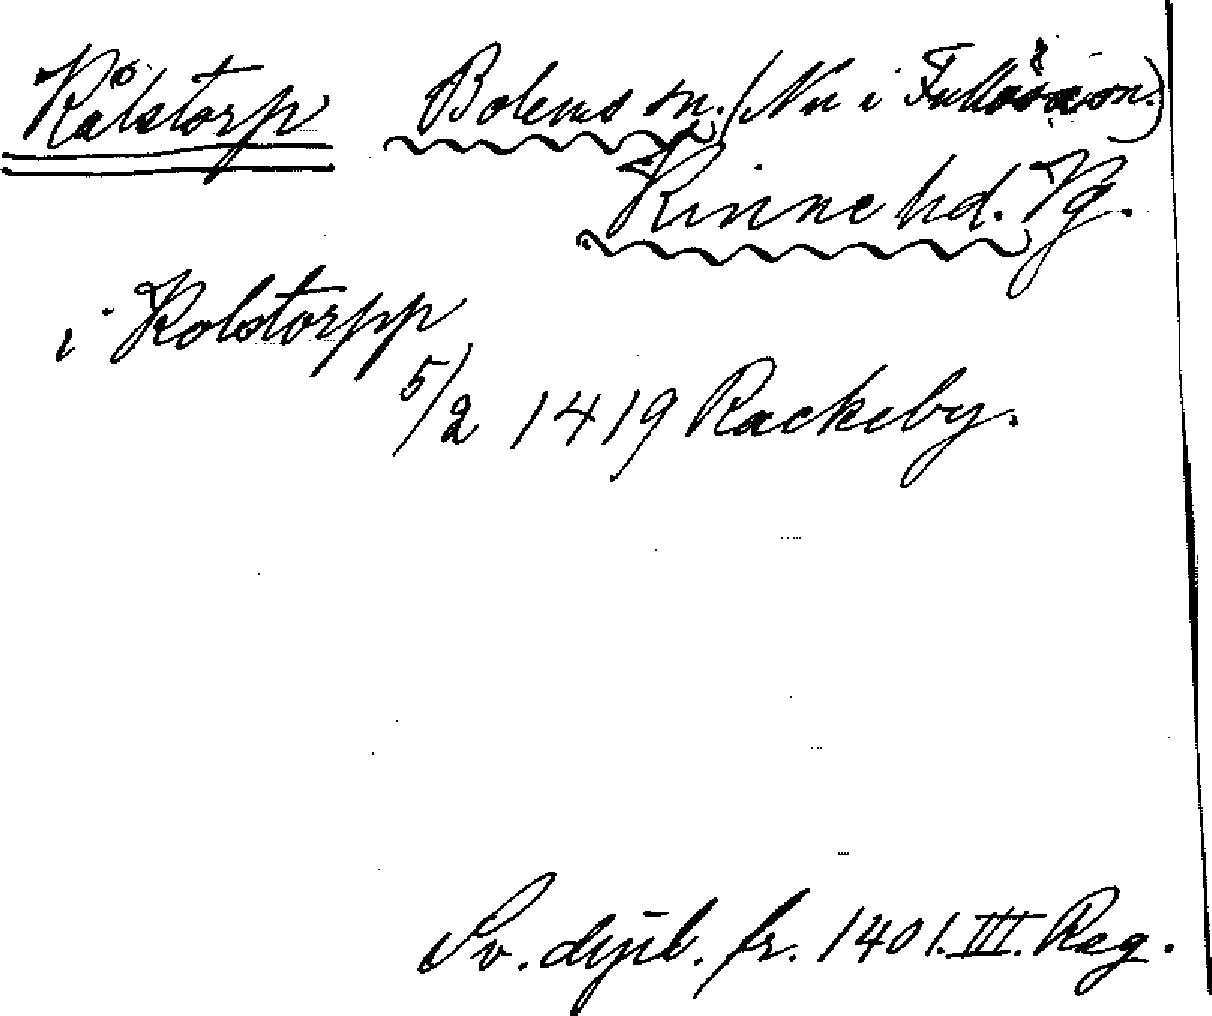 Kålstorp Bolems sn. (Nu i Fullösa sn.)
Kinne hd. Vg.
i Kolstorpp
5/2 1419 Rackeby.
Sv. dipl. fr. 1401. III. Reg.